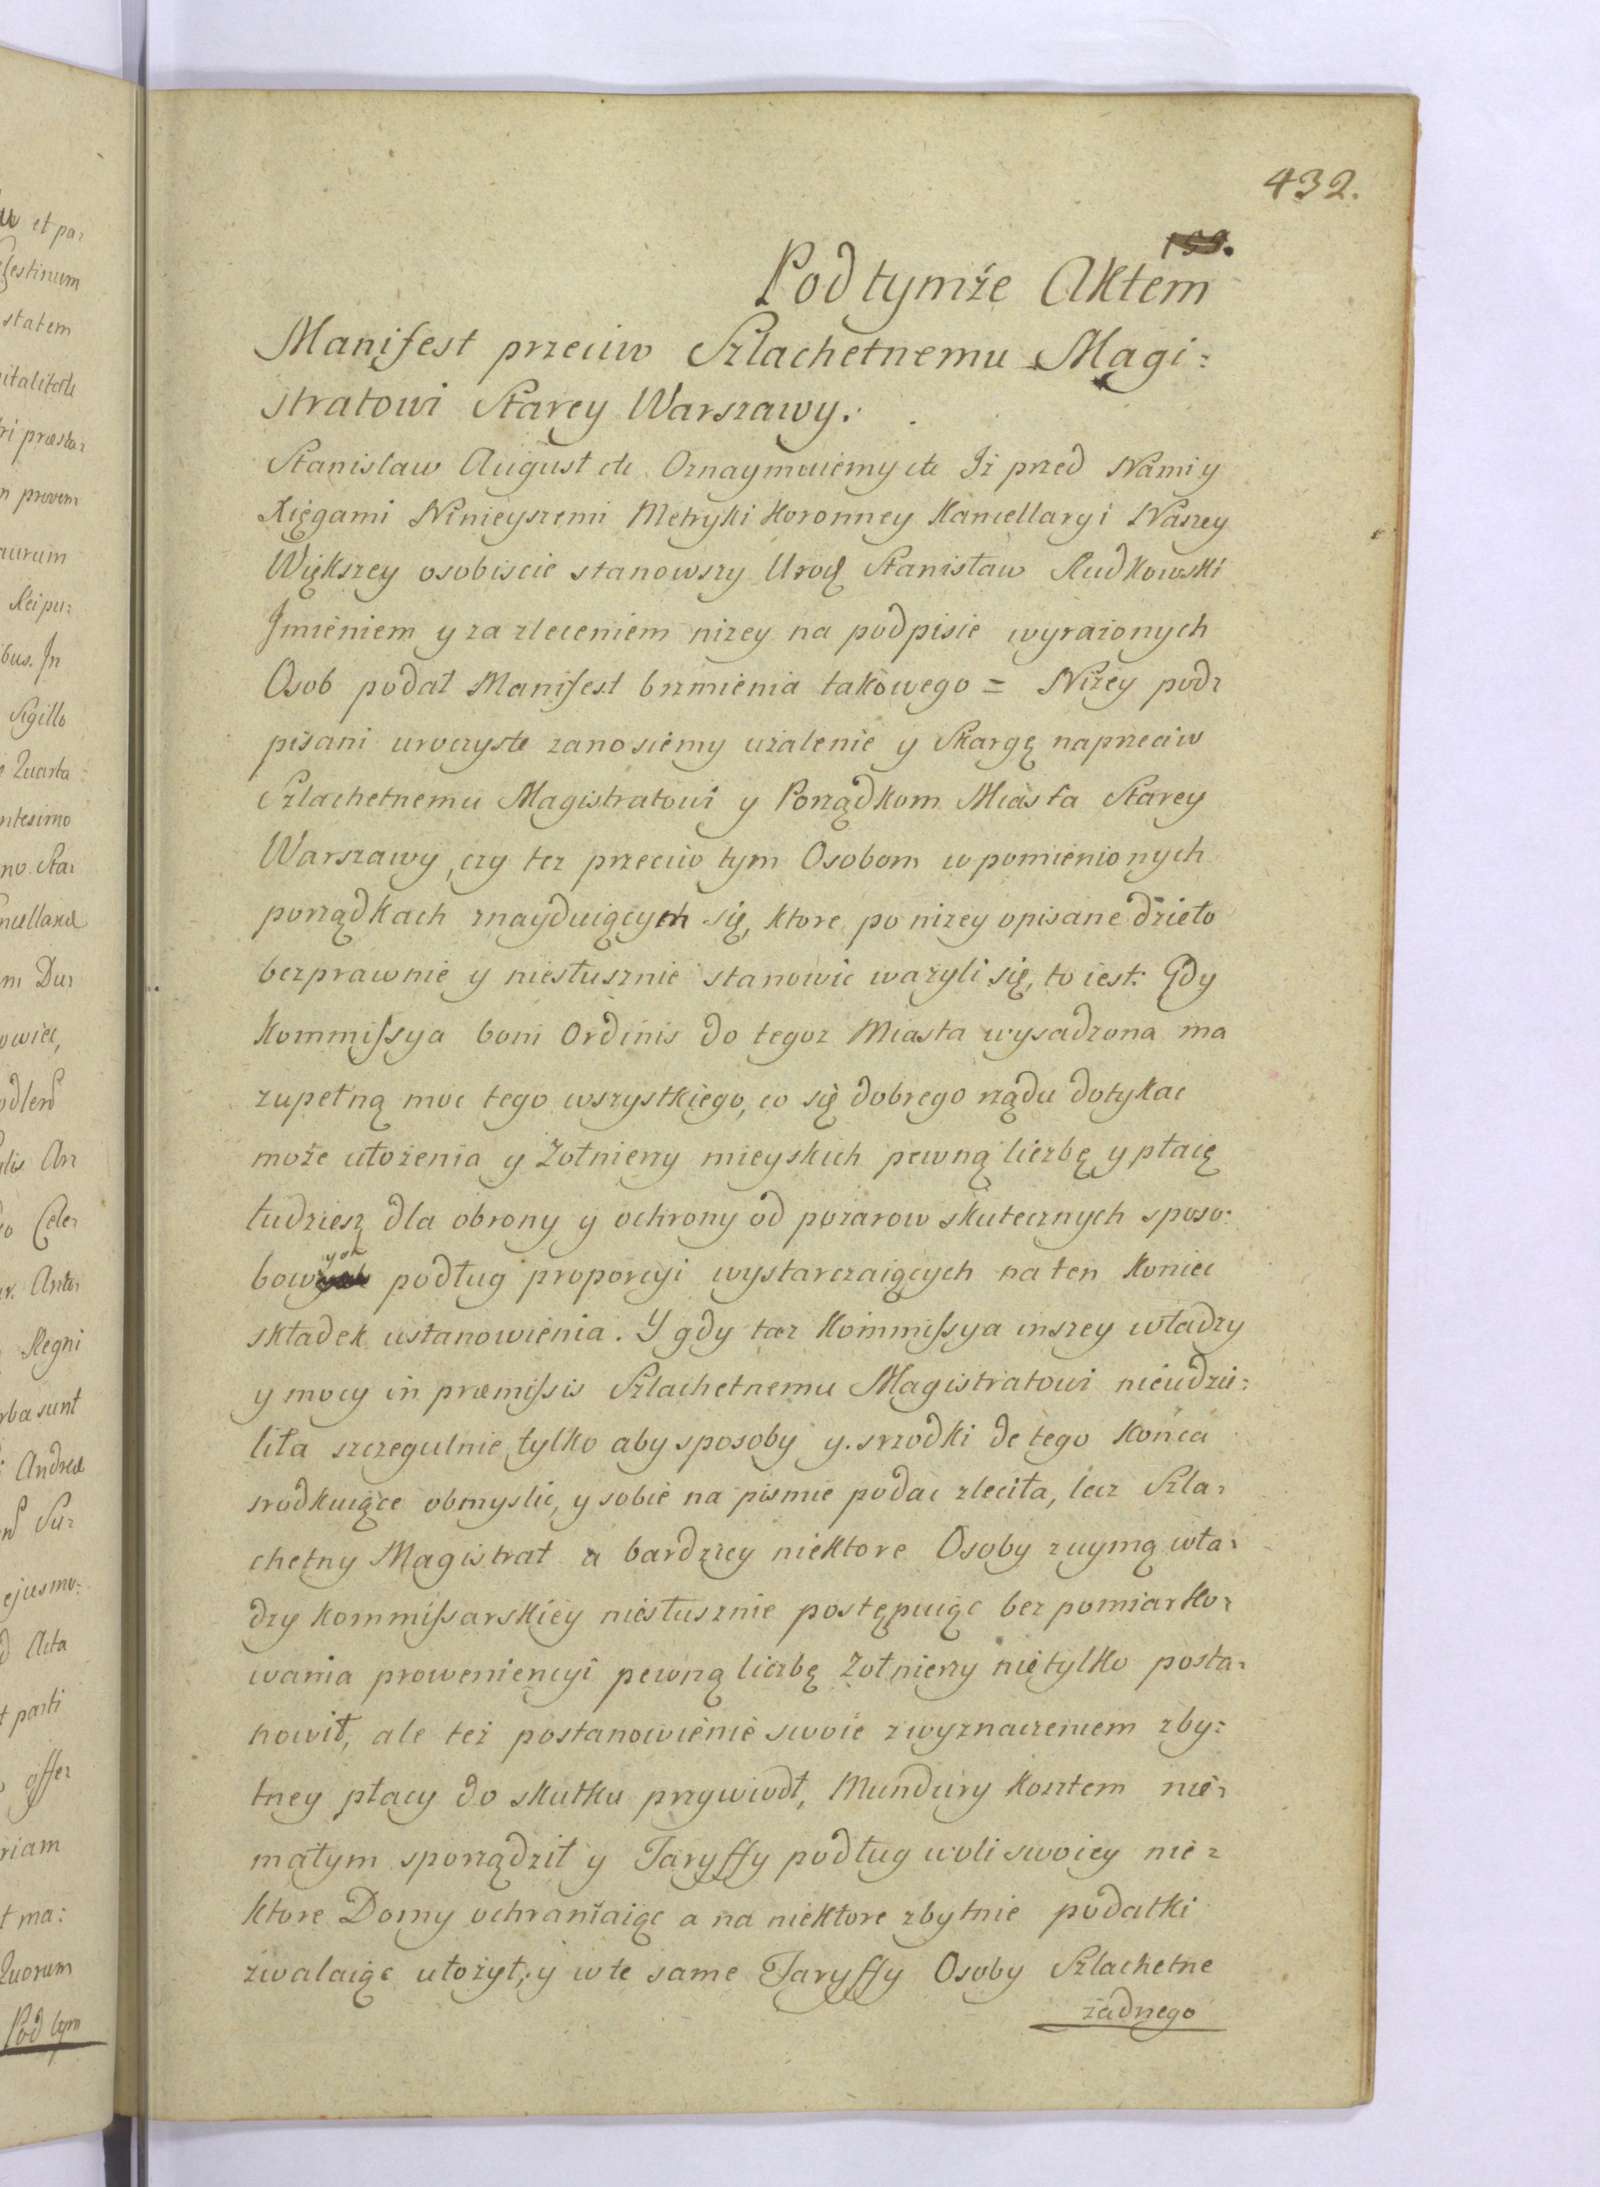 432.
Pod tymże Aktem
Manifest przeciw Szlachetnemu Magi:
stratowi Starey Warszawy.
Stanislaw August etc Oznaymuiemy etc Iż przed Nami y
Xięgami Ninieyszemi Metryki Koronney Kancellaryi Naszey
Większey osobiscie stanowszy Urodz Stanisław Rudkowski
Jmieniem y za zleceniem nizey na podpisie wyrazonych
Osob podał Manifest brzmienia takowego = Niżey pod:
pisani uroczyste zanosiemy użalenie y Skargę naprzeciw
Szlachetnemu Magistratowi y Porządkom Miasta Starey
Warszawy, czy tez przeciw tym Osobom w pomienionych
porządkach znayduiących się, ktore po nizey opisane dzieło
bezprawnie y niesłusznie stanowic ważyli się, to iest: Gdy
Kommissya boni Ordinis do tegoz Miasta wysadzona ma
zupełną moc tego wszystkiego, co się dobrego rządu dotykac
może ułożenia y Żołnierzy mieyskich pewną liczbę y płacę
tudziesz dla obrony y ochrony od pozarow skutecznych sposo:
bow podług proporcyi wystarczaiących na ten koniec
składek ustanowienia. Y gdy taz Kommissya inszey władzy
y mocy in præmissis Szlachetnemu Magistratowi nieudzie:
liła szczegulnie tylko aby sposoby y srzodki do tego końca
srodkuiące obmyslic, y sobie na pismie podac zleciła, lecz Szla:
chetny Magistrat a bardziey niektore Osoby zuymą wła:
dzy Kommissarskiey niesłusznie postępuiąc bez pomiarko:
wania proweniencyi pewną liczbę Żołnierzy nietylko posta:
nowił, ale też postanowienie swoie z wyznaczeniem zby:
tney płacy do skutku przywiodł, Mundury kosztem nie:
małym sporządził y Taryffy podług woli swoiey nie:
ktore Domy ochraniaiąc a na niektore zbytnie podatki
zwalaiąc ułożył, y w te same Taryffy Osoby Szlachetne
żadnego